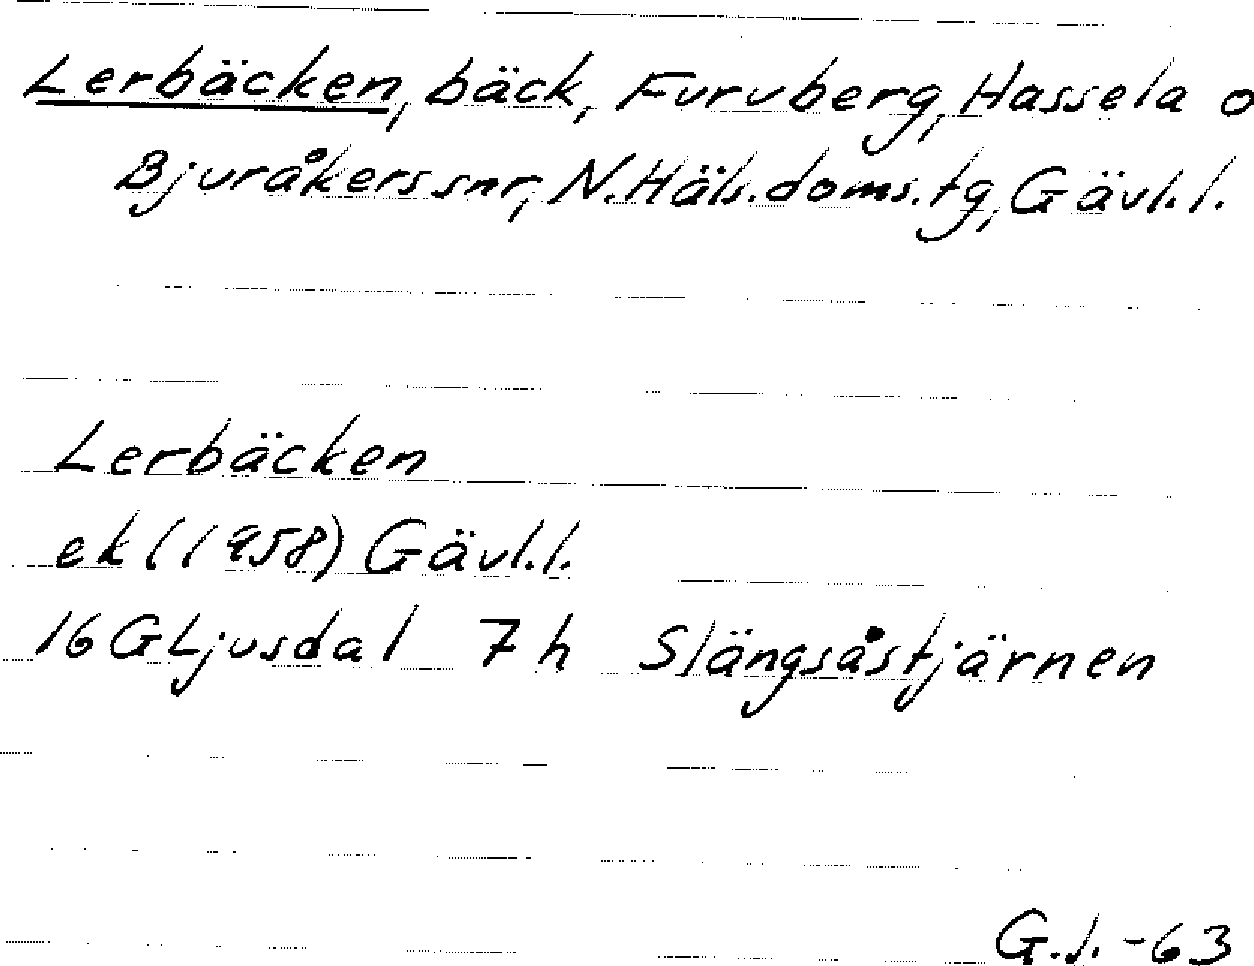 Lerbäcken, bäck, Furuberg, Hassela o
Bjuråkers snr, N.Häls.doms.tg, Gävl.l.
Lerbäcken
ek (1958) Gävl.l.
16G Ljusdal 7h Slängsåstjärnen
G.J.-63